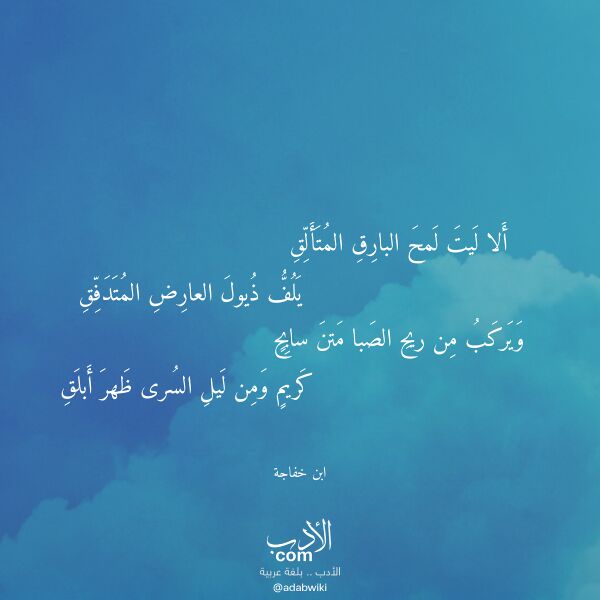 أَلا لَيتَ لَمحَ البارِقِ المُتَأَلِّقِ
يَلُفُّ ذُيولَ العارِضِ المُتَدَفِّقِ
وَيَركَبُ مِن ريحِ الصَبا مَتنَ سابِحٍ
كَريمٍ وَمِن لَيلِ السُرى ظَهرَ أَبلَقِ
ابن خفاجة
الأدب
com
الأدب .. بلغة عربية
@adabwiki